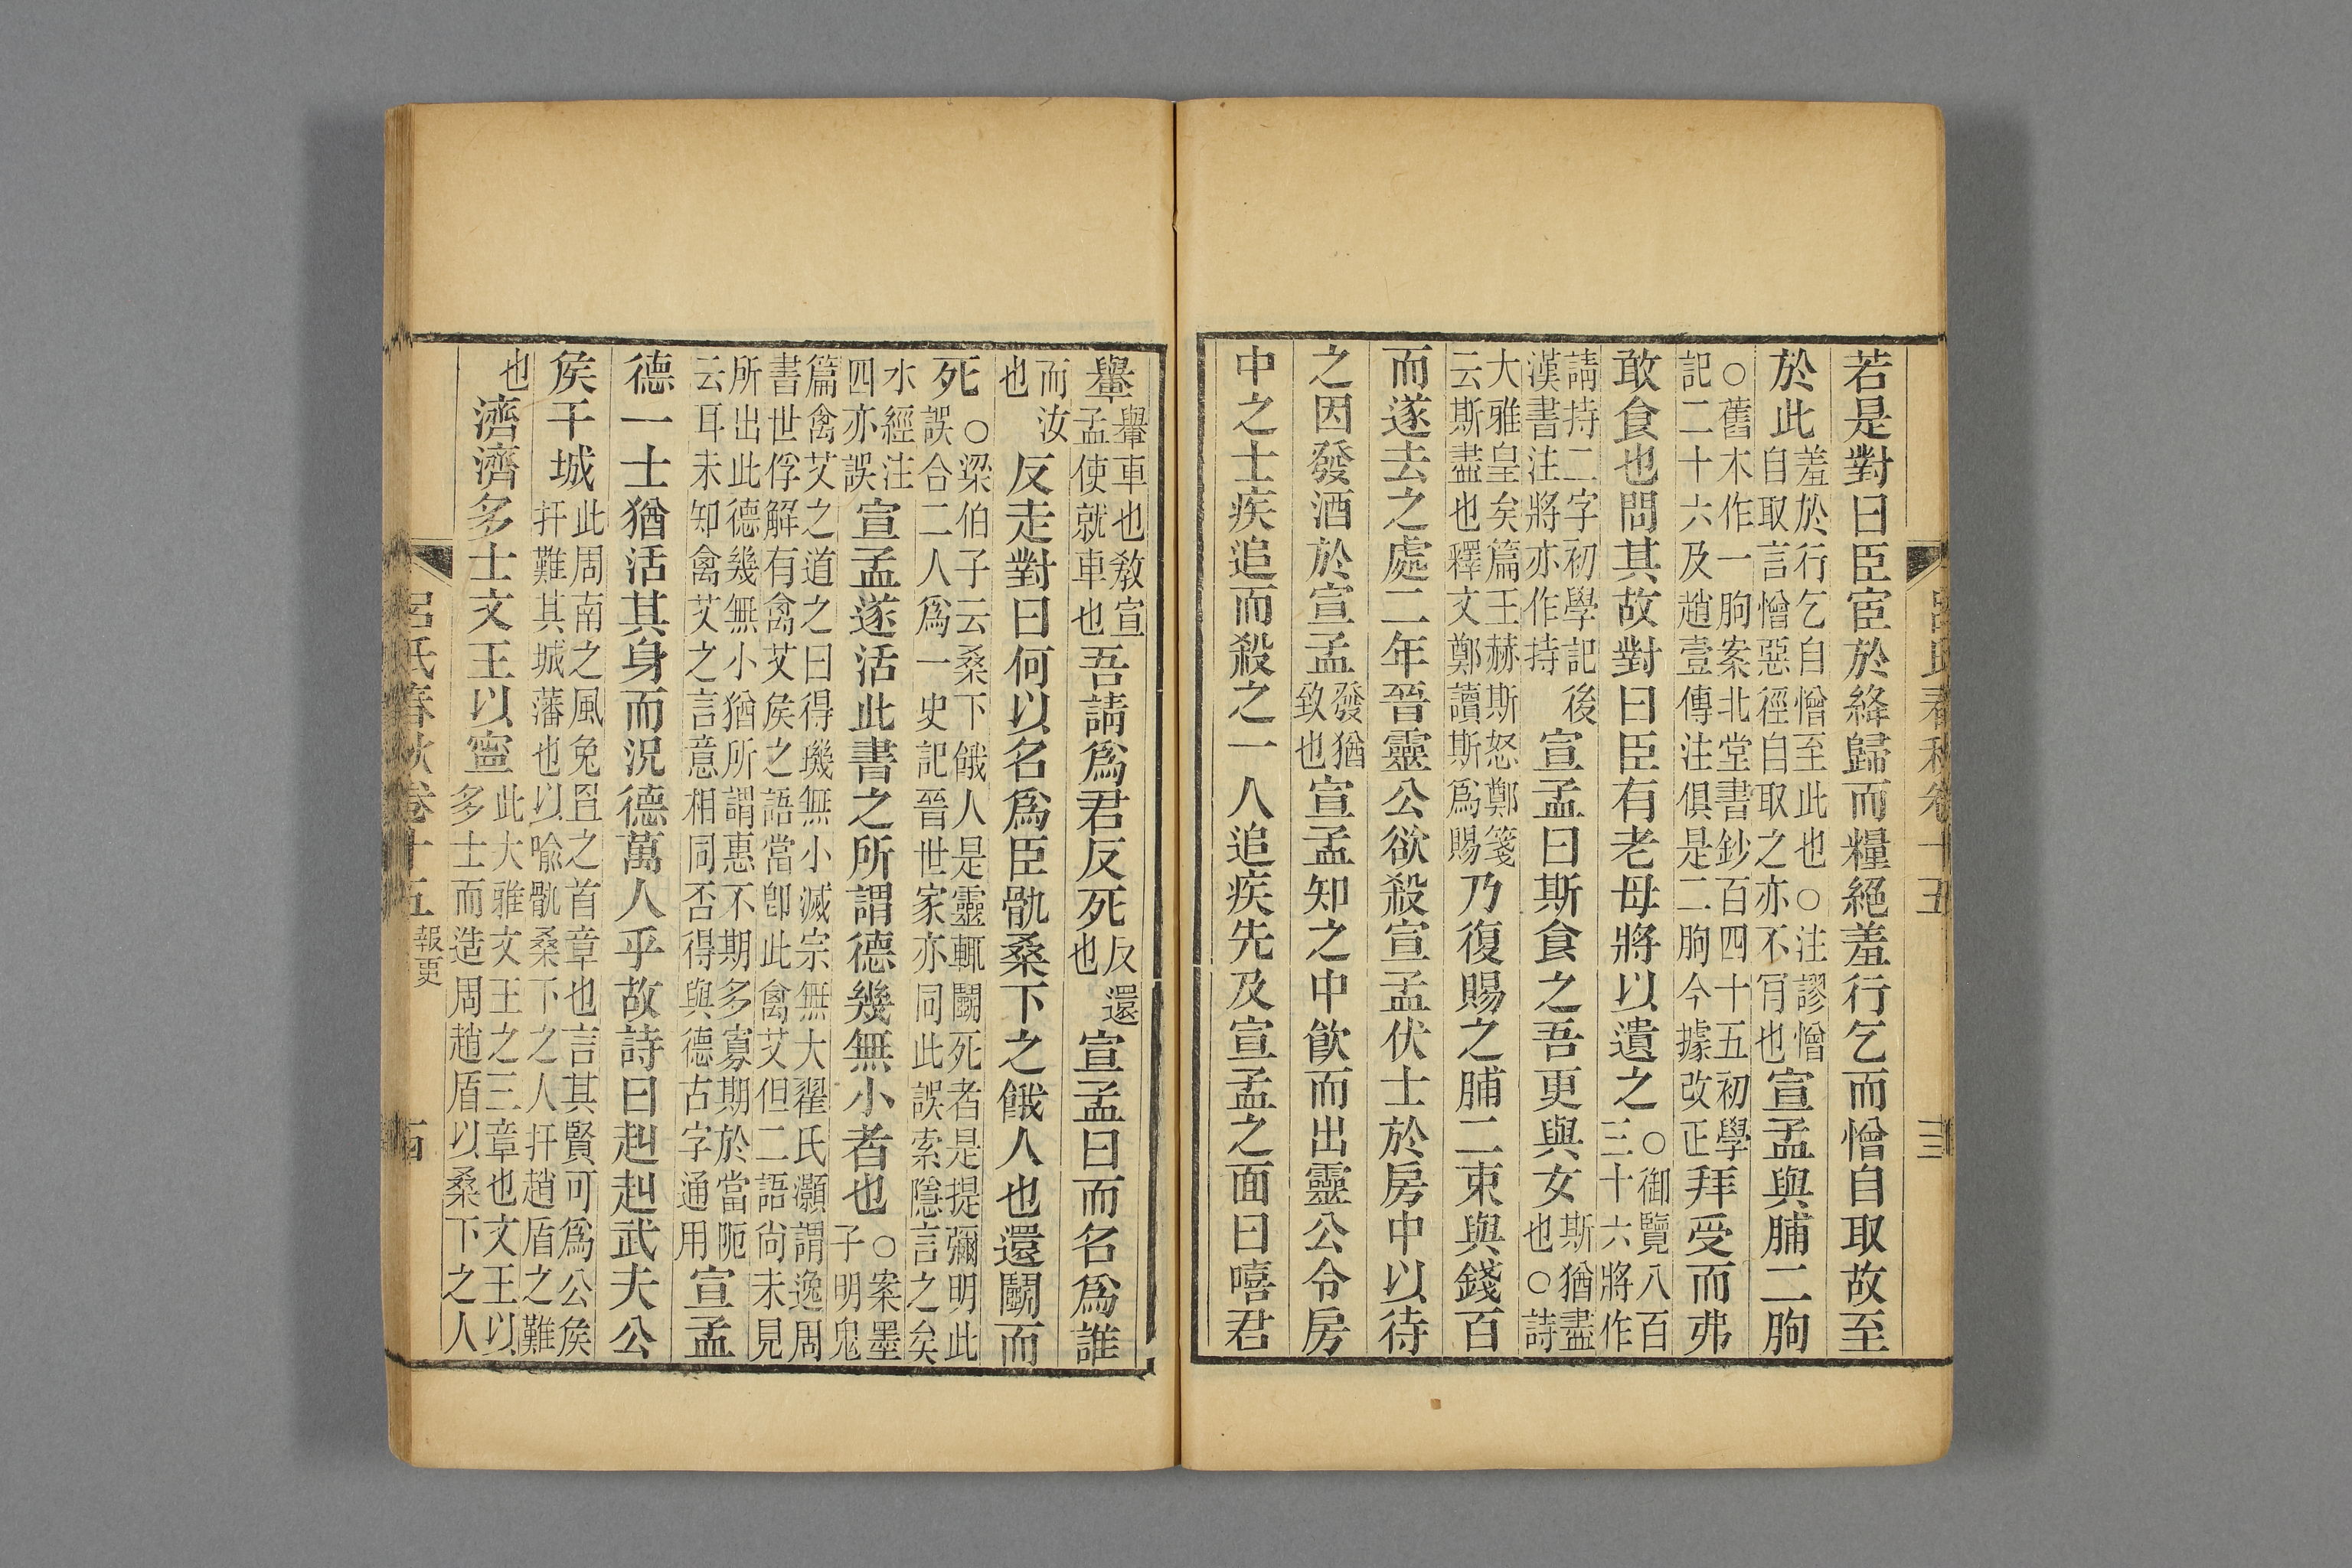 呂氏春秋卷十五 三
若是對曰臣宦於絳歸而糧絕羞行乞而憎自取故至
於此羞於行乞自憎至此也○注謬憎自取言憎惡徑自取之亦不肎也宣孟與脯二朐
○舊本作一朐案北堂書鈔百四十五初學記二十六及趙壹傳注俱是二朐今據改正拜受而弗
敢食也問其故對曰臣有老母將以遺之○御覽八百三十六將作
請持二字初學記後漢書注將亦作持宣孟曰斯食之吾更與女斯猶盡也○詩
大雅皇矣篇王赫斯怒鄭箋云斯盡也釋文鄭讀斯爲賜乃復賜之脯二束與錢百
而遂去之處二年晉靈公欲殺宣孟伏士於房中以待
之因發酒於宣孟發猶致也宣孟知之中飲而出靈公令房
中之士疾追而殺之一人追疾先及宣孟之面曰嘻君
轝轝車也敎宣孟使就車也吾請爲君反死反還也宣孟曰而名爲誰
而汝也反走對曰何以名爲臣骩桑下之餓人也還鬭而
死○梁伯子云桑下餓人是靈輒鬭死者是提彌明此誤合二人爲一史記晉世家亦同此誤索隱言之矣
水經注四亦誤宣孟遂活此書之所謂德幾無小者也○案墨子明鬼
篇禽艾之道之曰得璣無小滅宗無大翟氏灝謂逸周書世俘解有禽艾矦之語當卽此禽艾但二語尚未見
所出此德幾無小猶所謂惠不期多寡期於當阨云耳未知禽艾之言意相同否得與德古字通用宣孟
德一士猶活其身而況德萬人乎故詩曰赳赳武夫公
矦干城此周南之風兔罝之首章也言其賢可爲公矦扞難其城藩也以喻骩桑下之人扞趙盾之難
也濟濟多士文王以寧此大雅文王之三章也文王以多士而造周趙盾以桑下之人
呂氏春秋卷十五 報更